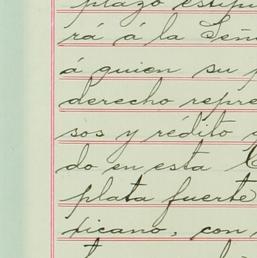 plazo estipu
rá á la Seño
á quien su p
derecho repre
sos y rédito
do en esta C
plata fuerte
xicano, con